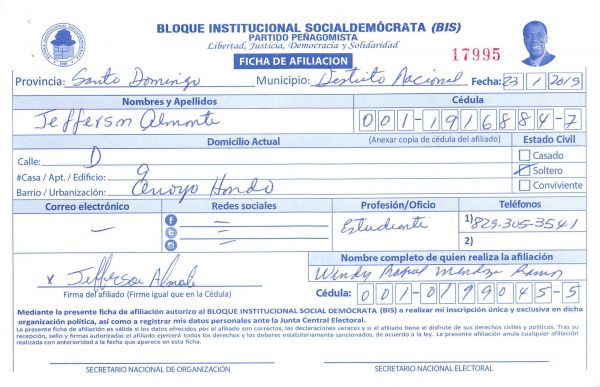 BLOQUE INSTITUCIONAL SOCIALDEMÓCRATA (BIS)
PARTIDO PEÑAGOMISTA
Libertad, Justicia, Democracia y Solidaridad
FICHA DE AFILIACION
17995
Provincia: Santo Domingo Municipio: Distrito Nacional Fecha: 23/1/2019
Nombres y Apellidos Cédula
Jefferson Almonte 001-1916884-7
Domicilio Actual (Anexar copia de cédula del afiliado) Estado Civil
Calle: D Casado
#Casa / Apt. / Edificio: 9 Soltero
Barrio / Urbanización: Arroyo Hondo Conviviente
Correo electrónico Redes sociales Profesión/Oficio Teléfonos
— Estudiante 1) 829-305-3541
2)
Nombre completo de quien realiza la afiliación
x Jefferson Almonte Windy Rafael Mendez Ramos
Firma del afiliado (Firme igual que en la Cédula) Cédula: 001-0199045-5
Mediante la presente ficha de afiliación autorizo al BLOQUE INSTITUCIONAL SOCIAL DEMÓCRATA (BIS) a realizar mi inscripción única y exclusiva en dicha
organización política, así como a registrar mis datos personales ante la Junta Central Electoral.
La presente ficha de afiliación es válida si los datos ofrecidos por el afiliado son correctos, las declaraciones veraces y si el afiliado tiene el disfrute de sus derechos civiles y políticos. Tras su
recepción, sello y firmas autorizadas el afiliado ejercerá todos los derechos y los deberes estatutariamente sancionados, de acuerdo a la ley. La presente afiliación anula cualquier afiliación
realizada con anterioridad a la fecha que aparece en esta ficha.
SECRETARIO NACIONAL DE ORGANIZACIÓN SECRETARIO NACIONAL ELECTORAL